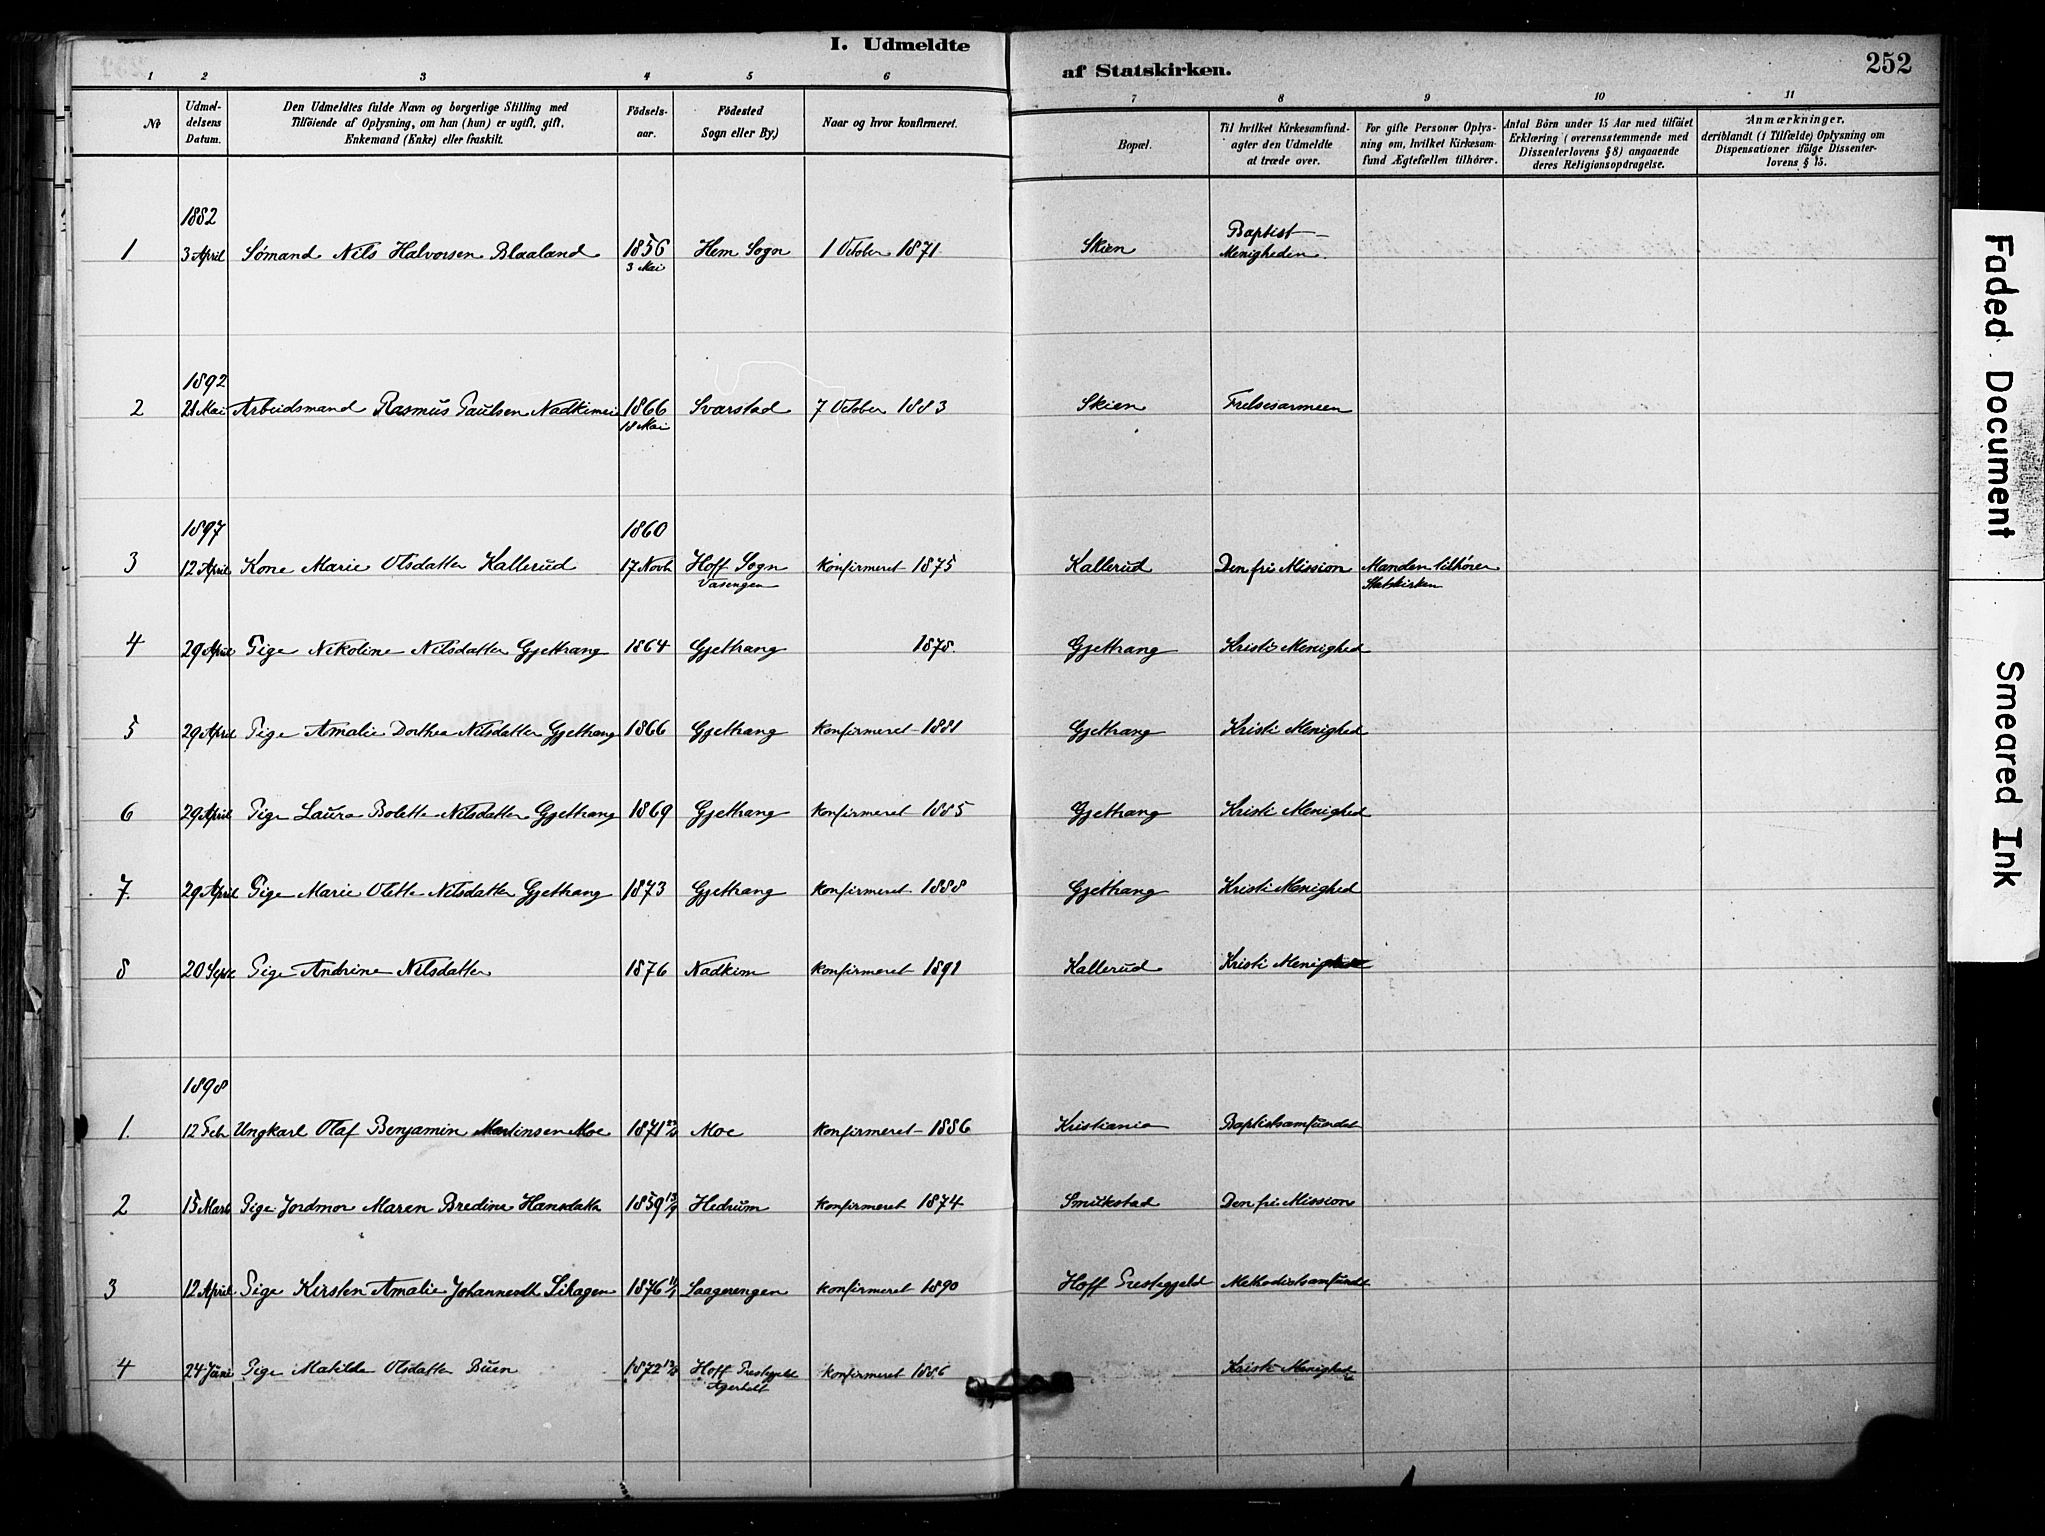 I. Udmeldte af Statskirken. 252
1 2 3 4 5 6 7 8 9 10 11
Nr
Udmeldelsens Datum.
Den Udmeldtes fulde Navn og borgerlige Stilling med
Tilföiende af Oplysning, om han (hun) er ugift, gift,
Enkemand (Enke) eller fraskilt.
Födsels-
aar.
Födested
Sogn eller By.)
Naar og hvor konfirmeret.
Bopæl.
Til hvilket Kirkesamfund-
agter den Udmeldte
at træde over.
For gifte Personer Oplys-
ning om, hvilket Kirkesam-
fund Ægtefællen tilhörer.
Antal Börn under 15 Aar med tilföiet
Erklæring (overensstemmende med
Dissenterlovens § 8) angaaende
deres Religionsopdragelse.
Anmærkninger,
deriblandt (i Tilfælde) Oplysning om
Dispensationer ifölge Dissenter-
lovens § 15.
1882
1 3 April Sømand Nils Halvorsen Blaaland 1856 Hem Sogn 1 October 1871 Skien Baptist-
3 Mai Menigheden.
1892
2 21 Mai Arbeidsmand Rasmus Paulsen Nadkimeie 1866 Svarstad 7 October 1883 Skien Frelsesarmeen
18 Mai
1897 1860
3 12 April Kone Marie Olsdatter Kallerud 17 Novb Hoff Sogn Konfirmeret 1875 Kallerud Den fri Mission Manden tilhører
Vasengen Statskirken
4 29 April Pige Nikoline Nilsdatter Gjettrang 1864 Gjettrang 1878 Gjettrang Kristi Menighed
5 29 April Pige Amalie Dorthea Nilsdatter Gjettrang 1866 Gjettrang Konfirmeret 1881 Gjettrang Kristi Menighed
6 29 April Pige Laura Bolette Nilsdatter Gjettrang 1869 Gjettrang Konfirmeret 1885 Gjettrang Kristi Menighed
7. 29 April Pige Marie Olette Nilsdatter Gjettrang 1873 Gjettrang Konfirmeret 1888 Gjettrang Kristi Menighed
8 20 Sept Pige Andrine Nilsdatter 1876 Nadkim Konfirmeret 1891 Kallerud Kristi Menighed
1898
1. 12 Feb Ungkarl Olaf Benjamin Martinsen Moe 1871 Moe Konfirmeret 1886 Kristiania Baptistsamfundet
2 15 Marts Pige Jordmor Maren Bredine Hansdatter 1859 Hedrum Konfirmeret 1874 Smukstad Den fri Mission
3 12 April Pige Kirsten Amalie Johannesdt 1876 Laagerengen Konfirmeret 1890 Hoff Prestegjeld Methodistsamfundet
4 24 Juni Pige Matilde Olsdatter Buen 1872 Hoff Prestegjeld Konfirmeret 1886 Kristi Menighed
Faded Document
Smeared Ink